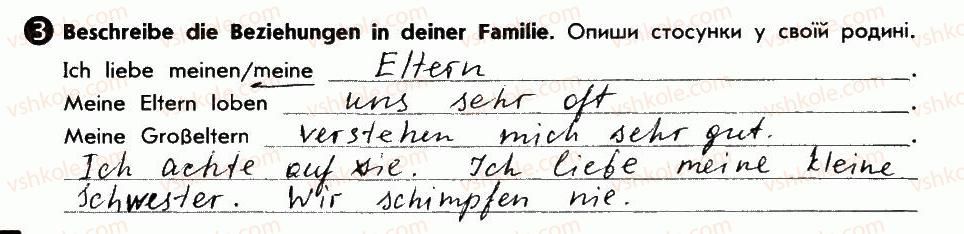 3 Beschreibe die Beziehungen in deiner Familie. Опиши стосунки у своїй родині.
Ich liebe meinen/meine Eltern.
Meine Eltern loben uns sehr oft.
Meine Großeltern verstehen mich sehr gut.
Ich achte auf sie. Ich liebe meine kleine
Schwester. Wir schimpfen nie.